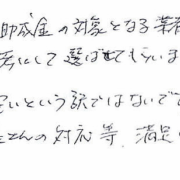 助成金の対象となる業者
にして選ばせてもらいま
いという訳ではないで
さんの対応等、満足